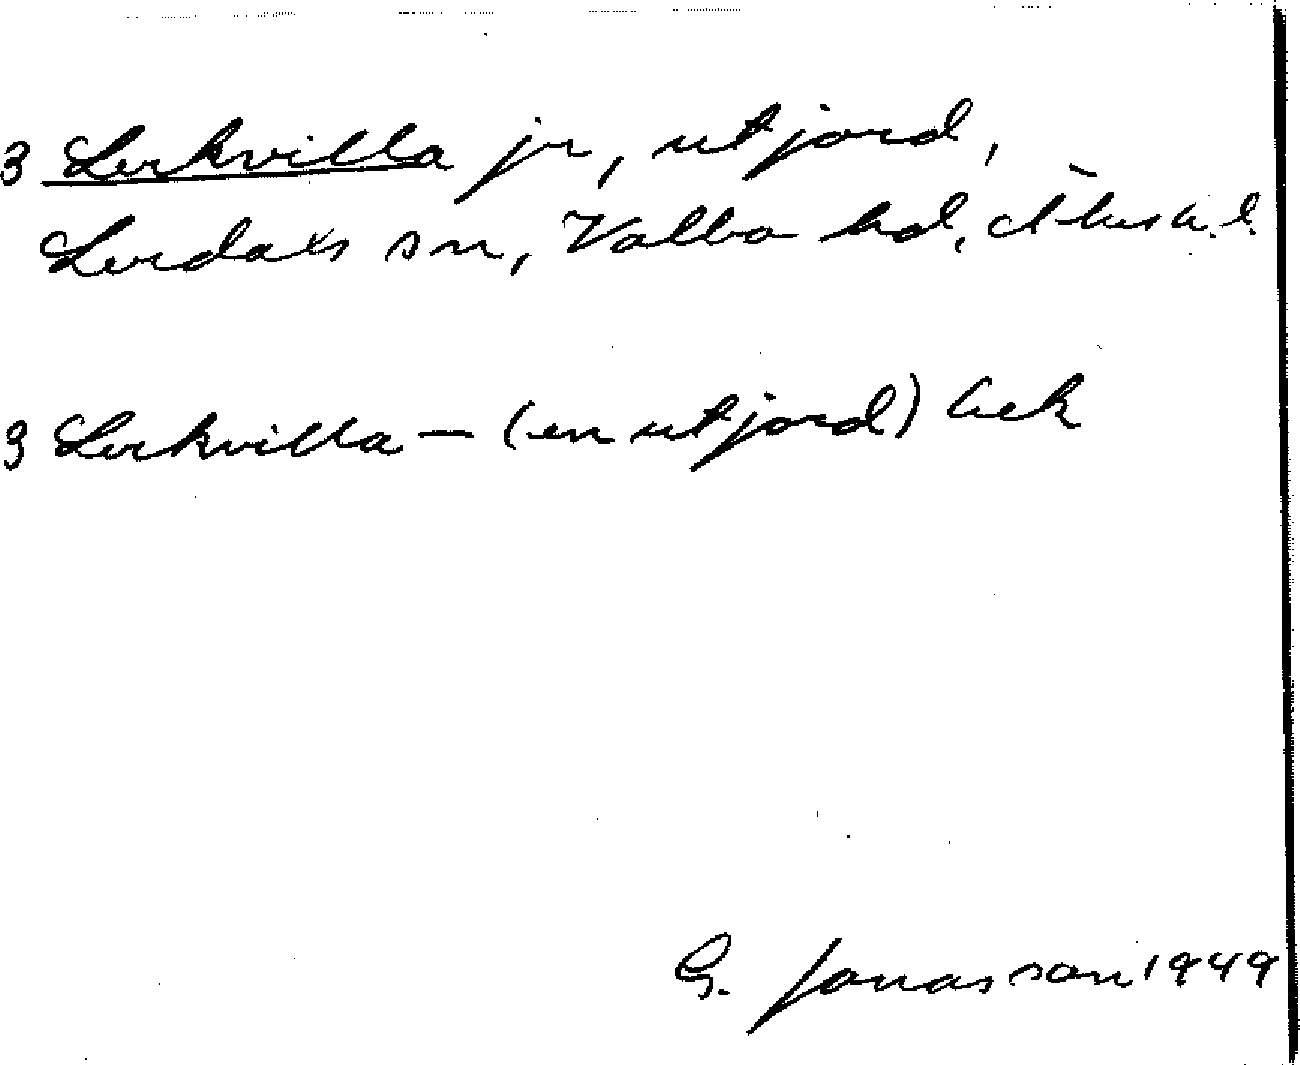 3 Lerkvilla jr, utjord,
Lerdals sn, Valbo hd, Älvsb. l.
3 Lerkvilla — (en utjord)
G. Jonasson 1949